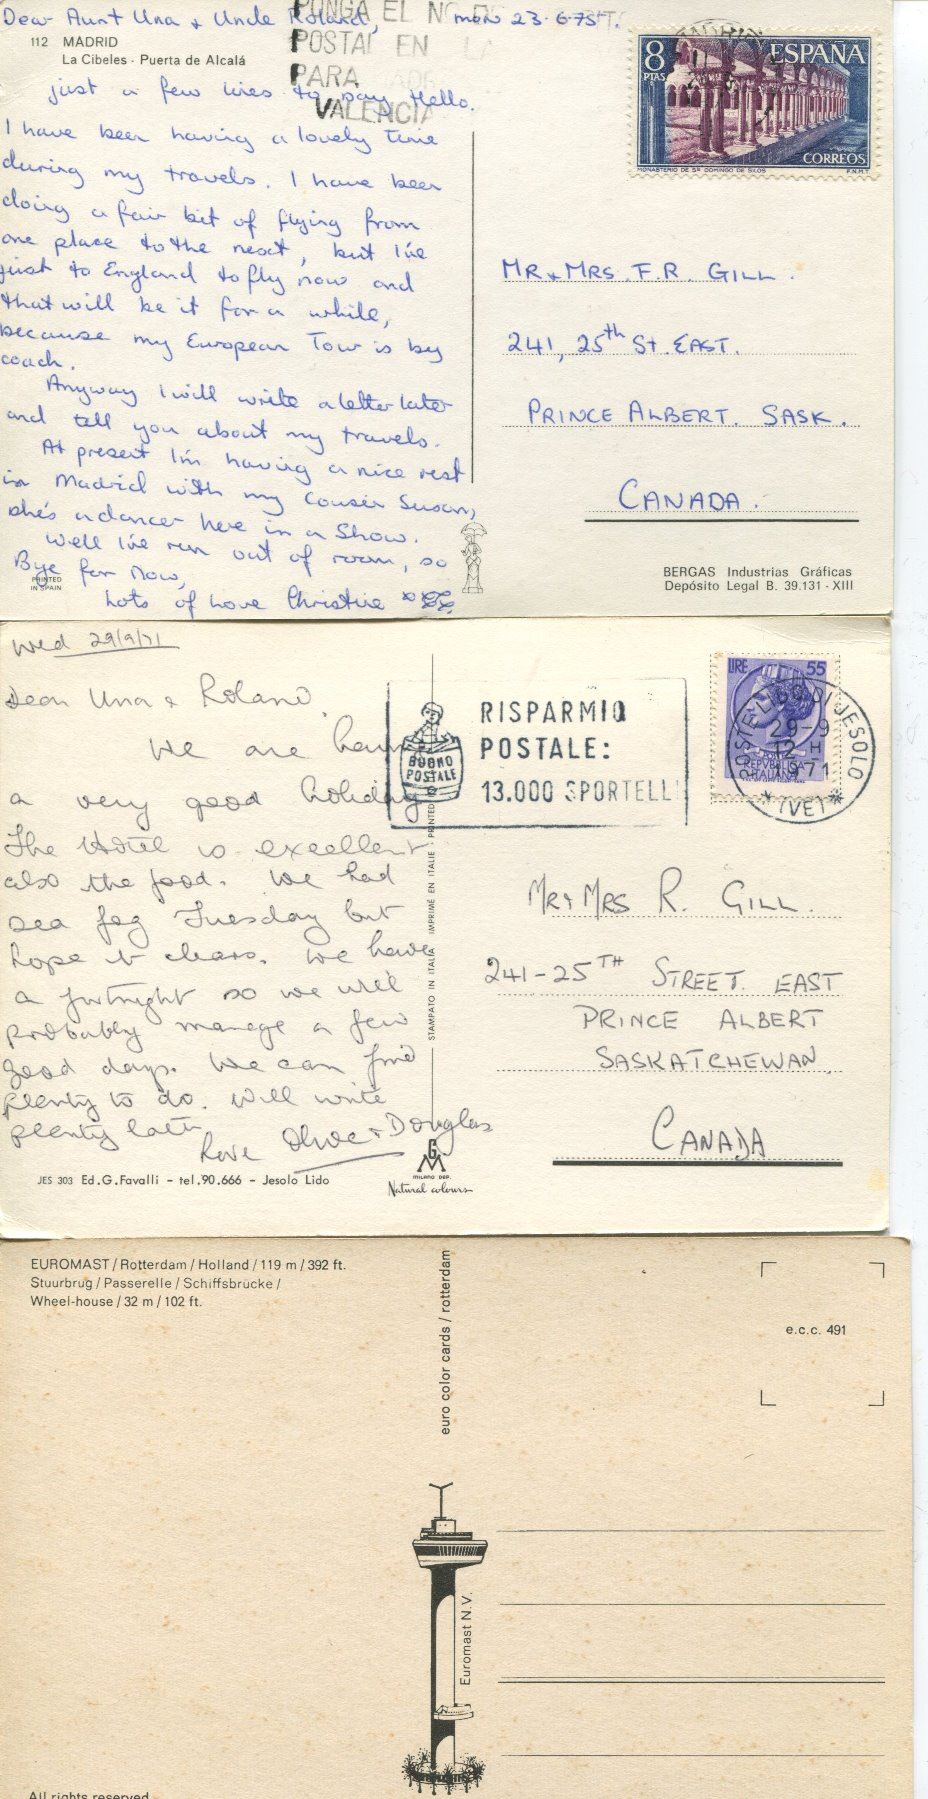 Dear Aunt Una & Uncle Roland, mon 23.6.75.
PONGA EL NO
POSTAL EN LA
PARA
VALENCIA
112 MADRID
La Cibeles - Puerta de Alcalá
just a few lines to say Hello.
I have been having a lovely time
during my travels. I have been
doing a fair bit of flying from
one place to the next, but I've
just to England to fly now and
that will be it for a while,
because my European Tour is by
coach.
Anyway I will write a letter later
and tell you about my travels.
At present I'm having a nice rest
in Madrid with my cousin Susan,
she's a dancer here in a Show.
Well I've run out of room, so
Bye for Now,
Lots of Love Christine
PRINTED
IN SPAIN
8
PTAS
ESPAÑA
CORREOS
MONASTERIO DE Sº DOMINGO DE SILOS
F.N.M.T.
MR & MRS. F.R. GILL.
241, 25th St. EAST.
PRINCE ALBERT. SASK.
CANADA.
BERGAS Industrias Gráficas
Depósito Legal B. 39.131 - XIII
Wed 29/9/71
Dear Una & Roland,
We are having
a very good holiday
The Hotel is excellent
also the food. We had
sea fog Tuesday but
hope it clears. We have
a fortnight so we will
probably manage a few
good days. We can find
plenty to do. Will write
plenty later
Love Olive & Douglas
JES 303 Ed.G.Favalli - tel.90.666 - Jesolo Lido
STAMPATO IN ITALIA IMPRIMÉ EN ITALIE PRINTED
MILANO DEP.
Natural colours
BUONO
POSTALE
RISPARMIO
POSTALE:
13.000 SPORTELLI
LIRE 55
REPVBBLICA
ITALIANA
POSTE LIDO DI JESOLO
29-9
12 H
1971
(VE)
MR & MRS R. GILL.
241-25TH STREET. EAST
PRINCE ALBERT
SASKATCHEWAN.
CANADA
EUROMAST / Rotterdam / Holland / 119 m / 392 ft.
Stuurbrug / Passerelle / Schiffsbrücke /
Wheel-house / 32 m / 102 ft.
euro color cards / rotterdam
e.c.c. 491
Euromast N.V.
All rights reserved